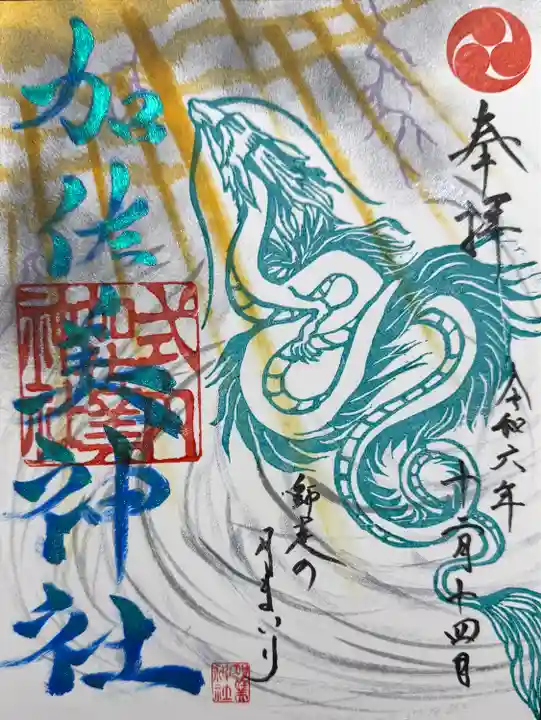 奉拝
令和六年
十二月十四日
師走の
月まいり
加佐美神社